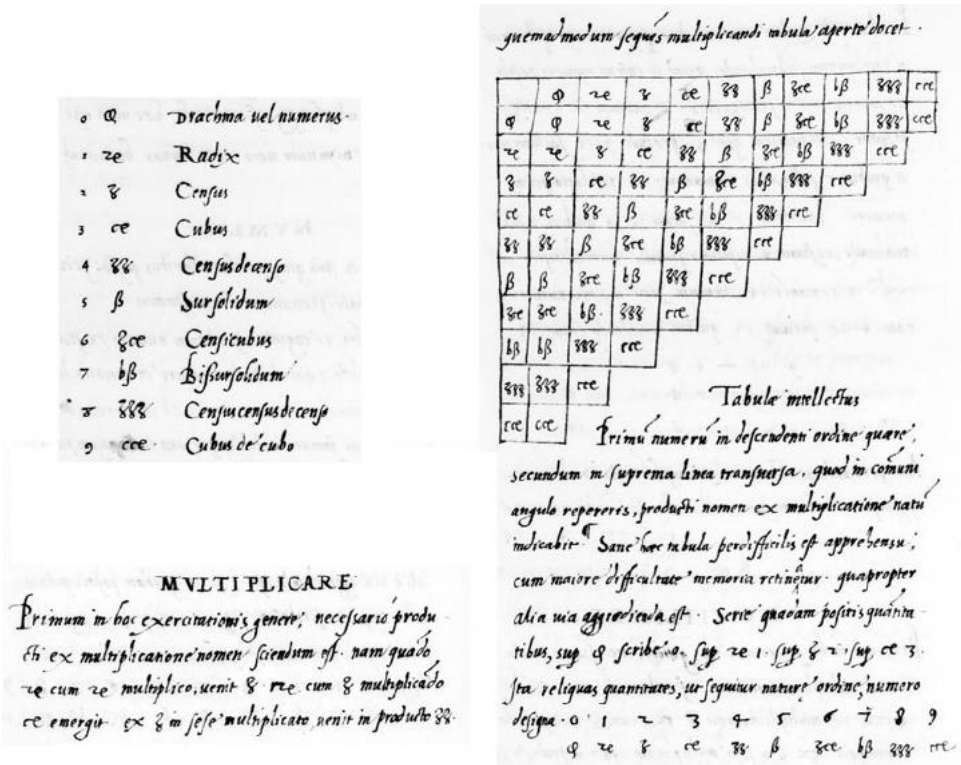 0 φ Drachma vel numerus.
1 ze Radix
2 ʒ Census
3 ce Cubus
4 ʒʒ Census de censo
5 ß Sursolidum
6 ʒce Censicubus
7 bß Bissursolidum
8 ʒʒʒ Census census de censo
9 cce. Cubus de cubo
MVLTIPLICARE
Primum in hoc exercitationis genere, necessario produ
cti ex multiplicatione nomen sciendum est. nam quādo
ze cum ze multiplico, venit ʒ. ze cum ʒ multiplicādo
ce emergit. ex ʒ in sese multiplicato, venit in producto ʒʒ.
quemadmodum sequēs multiplicandi tabula aperte docet.
φ ze ʒ ce ʒʒ ß ʒce bß ʒʒʒ cce
φ φ ze ʒ ce ʒʒ ß ʒce bß ʒʒʒ cce
ze ze ʒ ce ʒʒ ß ʒce bß ʒʒʒ cce
ʒ ʒ ce ʒʒ ß ʒce bß ʒʒʒ cce
ce ce ʒʒ ß ʒce bß ʒʒʒ cce
ʒʒ ʒʒ ß ʒce bß ʒʒʒ cce
ß ß ʒce bß ʒʒʒ cce
ʒce ʒce bß. ʒʒʒ cce
bß bß ʒʒʒ cce
ʒʒʒ ʒʒʒ cce
cce cce
Tabulæ intellectus
Primū numerū in descendenti ordine quære,
secundum in suprema linea transversa. quod in comūni
angulo repereris, producti nomen ex multiplicatione natū
indicabit. ¶ Sane hæc tabula perdifficilis est apprehensu,
cum maiore difficultate memoria retinētur. quapropter
alia via aggredienda est. Serie quadam positis quātita
tibus, sup φ scribe .0. sup ze 1. sup. ʒ 2. sup, ce 3.
Ita reliquas quantitates, ut sequitur naturæ ordine, numero
designa. 0 1 2 3 4 5 6 7 8 9
φ ze ʒ ce ʒʒ ß ʒce bß ʒʒʒ cce